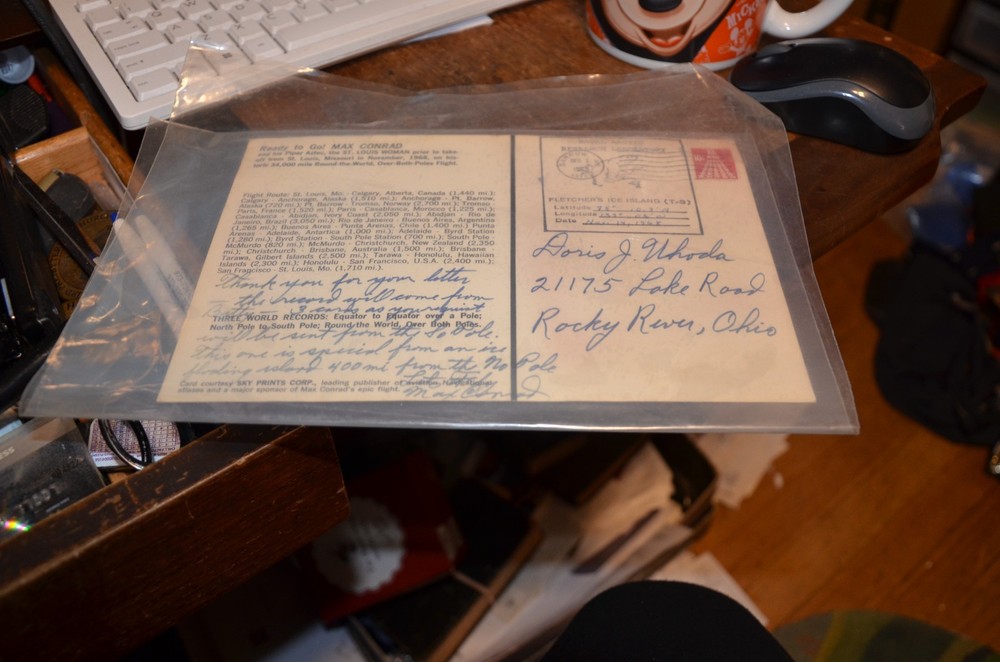 Ready to Go! MAX CONRAD
and his Piper Aztec, the ST. LOUIS WOMAN prior to take-
off from St. Louis, Missouri in November, 1968, on his
34,000 mile Round-the-World, Over-Both-Poles Flight.
Flight Route: St. Louis, Mo. - Calgary, Alberta, Canada (1,440 mi.);
Calgary - Anchorage, Alaska (1,610 mi.); Anchorage - Pt. Barrow,
Alaska (720 mi.); Pt. Barrow - Tromso, Norway (2,700 mi.); Tromso -
Paris, France (1,520 mi.); Paris - Casablanca, Morocco (1,225 mi.);
Casablanca - Abidjan, Ivory Coast (2,050 mi.); Abidjan - Rio de
Janeiro, Brazil (3,050 mi.); Rio de Janeiro - Buenos Aires, Argentina
(1,265 mi.); Buenos Aires - Punta Arenas, Chile (1,400 mi.); Punta
Arenas - Adelaide, Antartica (1,000 mi.); Adelaide - Byrd Station
(1,280 mi.); Byrd Station - South Pole Station (700 mi.); South Pole -
McMurdo (820 mi.); McMurdo - Christchurch, New Zealand (2,350
mi.); Christchurch - Brisbane, Australia (1,500 mi.); Brisbane -
Tarawa, Gilbert Islands (2,500 mi.); Tarawa - Honolulu, Hawaiian
Islands (2,300 mi.); Honolulu - San Francisco, U.S.A. (2,400 mi.);
San Francisco - St. Louis, Mo. (1,710 mi.).
Thank you for your letter
The record will come from
cards as you request
THREE WORLD RECORDS: Equator to Equator over a Pole;
North Pole to South Pole; Round-the-World, Over Both Poles.
will be sent from the So Pole.
This one is special from an ice
floating island 400 mi from the No Pole
Card courtesy SKY PRINTS CORP., leading publisher of
atlases and a major sponsor of Max Conrad's epic flight.
Max Conrad
RESEARCH LABORATORY
FLETCHER'S ICE ISLAND (T-3)
Latitude
Longitude
Date
Doris J. Uhoda
21175 Lake Road
Rocky River, Ohio